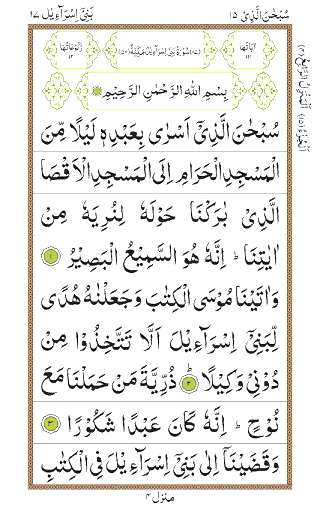 سُبْحٰنَ الَّذِیْ ١٥
بَنِیْ اِسْرَآءِیْل ١٧
اٰيَاتُهَا ١١١
(١٧) سُوْرَةُ بَنِیْ اِسْرَآءِیْلَ مَكِّيَّةٌ (٥٠)
رُكُوْعَاتُهَا ١٢
بِسْمِ اللّٰهِ الرَّحْمٰنِ الرَّحِیْمِ
سُبْحٰنَ الَّذِیْۤ اَسْرٰی بِعَبْدِهٖ لَیْلًا مِّنَ
الْمَسْجِدِ الْحَرَامِ اِلَی الْمَسْجِدِ الْاَقْصَا
الَّذِیْ بٰرَكْنَا حَوْلَهٗ لِنُرِیَهٗ مِنْ
اٰیٰتِنَا ؕ اِنَّهٗ هُوَ السَّمِیْعُ الْبَصِیْرُ ١
وَ اٰتَیْنَا مُوْسَی الْكِتٰبَ وَ جَعَلْنٰهُ هُدًی
لِّبَنِیْۤ اِسْرَآءِیْلَ اَلَّا تَتَّخِذُوْا مِنْ
دُوْنِیْ وَكِیْلًا ؕ ٢ ذُرِّیَّةَ مَنْ حَمَلْنَا مَعَ
نُوْحٍ ؕ اِنَّهٗ كَانَ عَبْدًا شَكُوْرًا ٣
وَ قَضَیْنَاۤ اِلٰی بَنِیْۤ اِسْرَآءِیْلَ فِی الْكِتٰبِ
اَلْمَنْزِلُ الرَّابِعُ (٤)
اَلْجُزْءُ (١٥)
منزل ٤